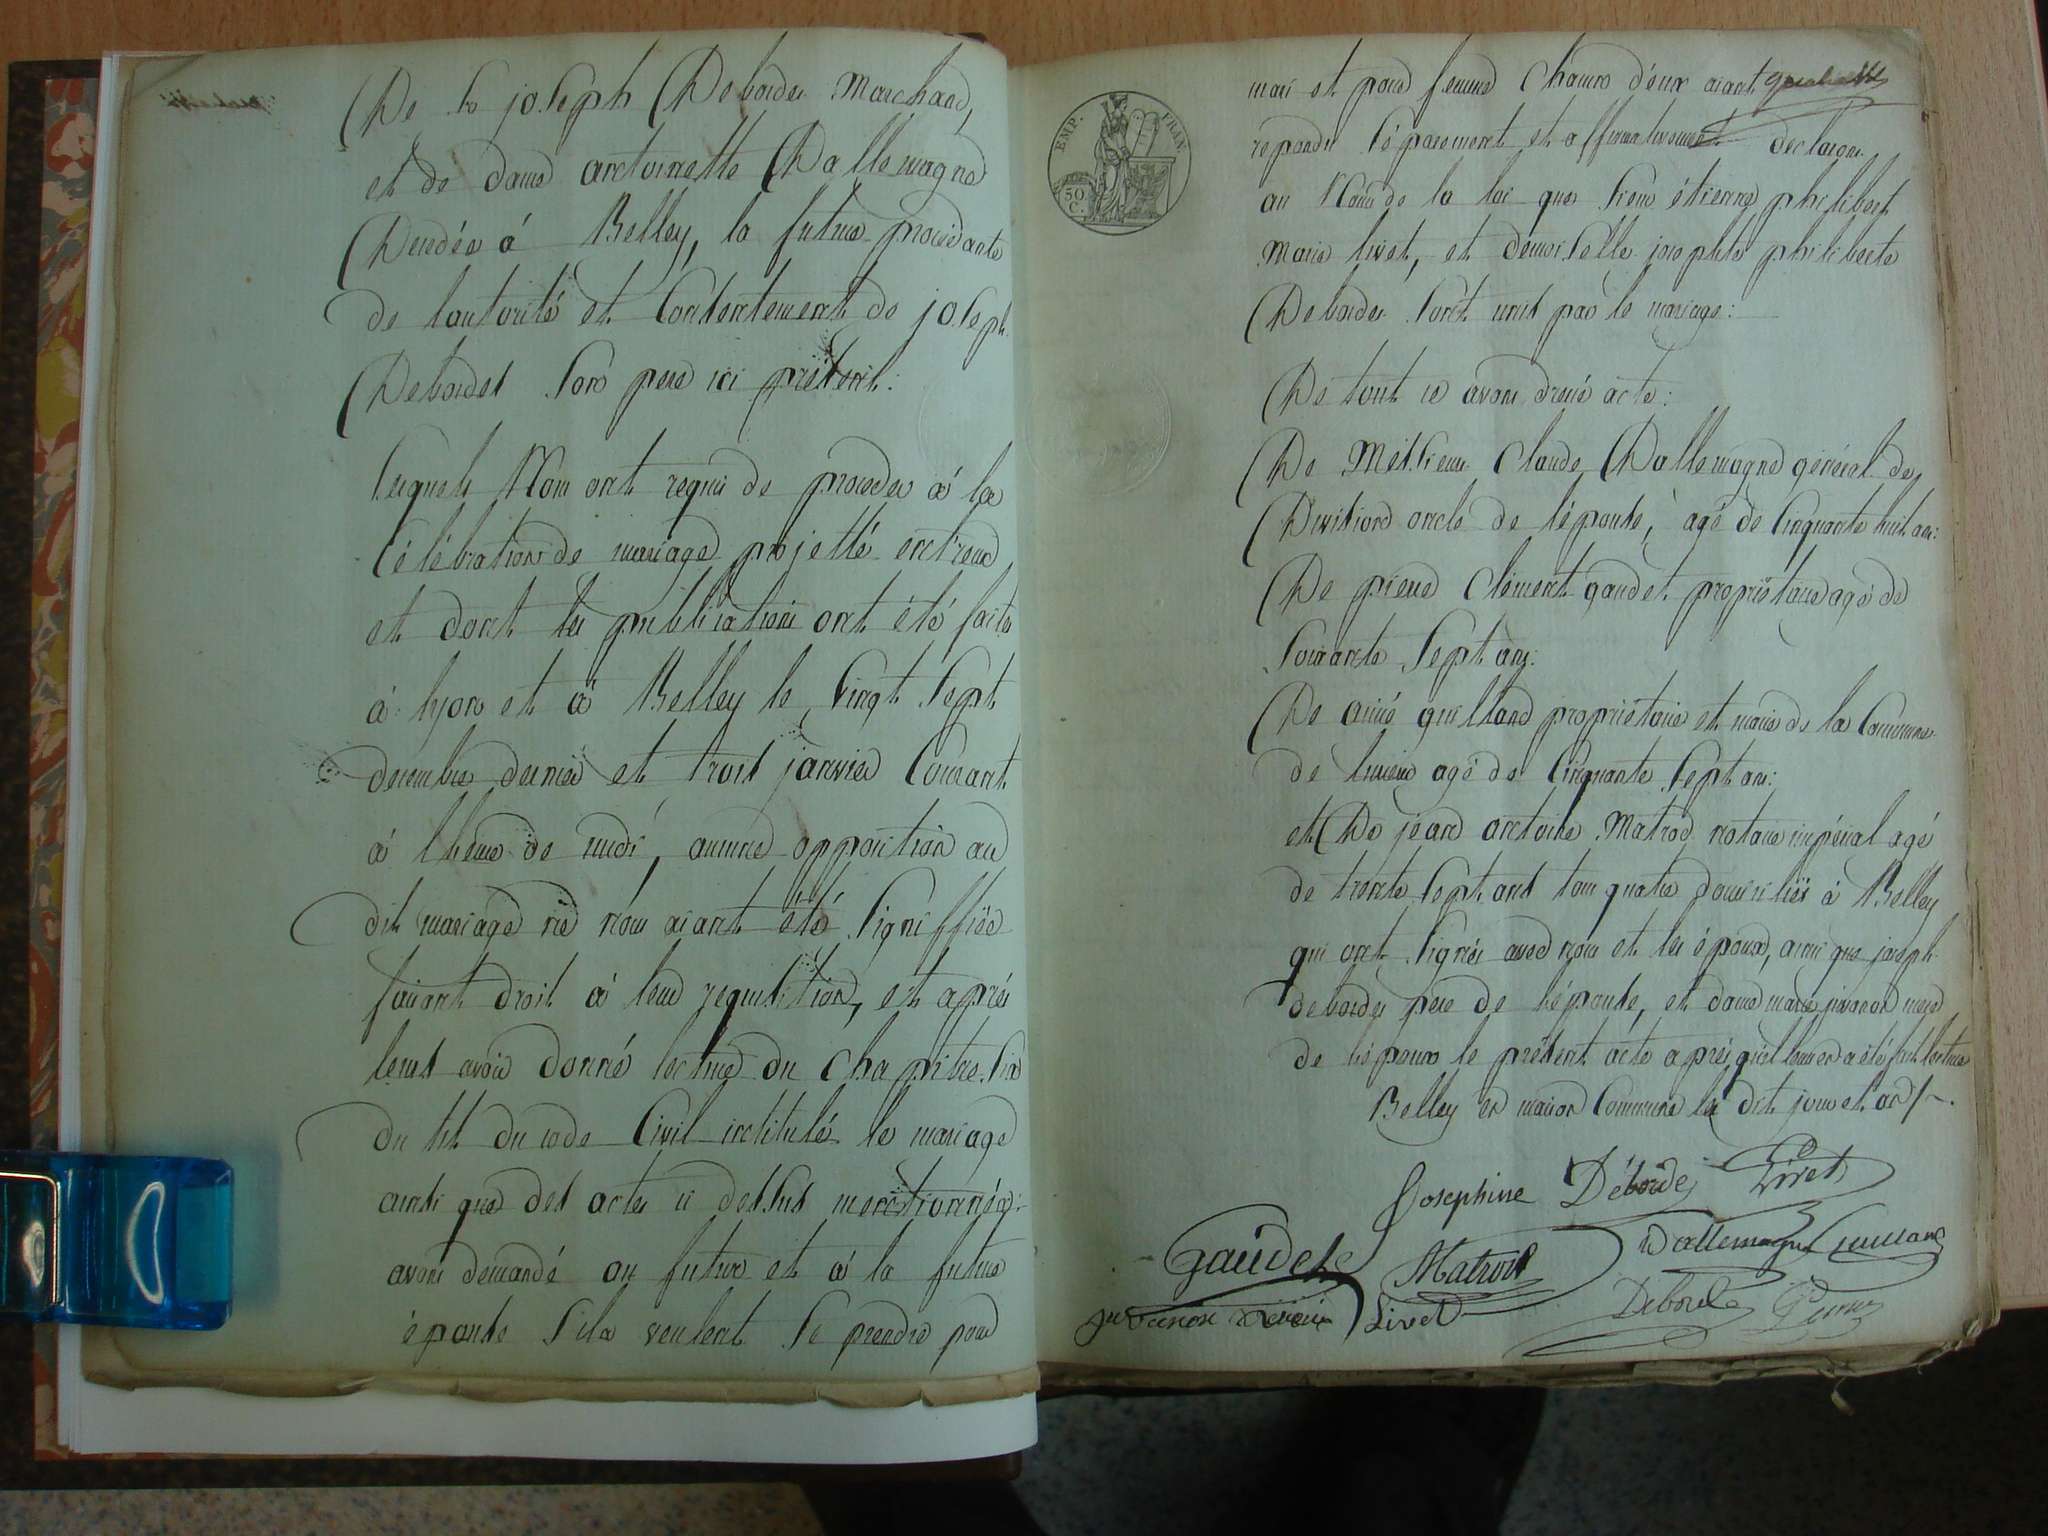 De sr joseph Debordes Marchand,
et de dame antoinette Dallemagne
Decedée á Belley, la future procedante
de l'autorité et Consentement de joseph
Debordes Son pere ici présent:
Lesquels Nous ont requis de proceder á la
Célébration de mariage projetté entreux
et dont les publications ont été faites
á lyon et á Belley le vingt Sept
decembre dernier et trois janvier Courant
á l'heure de midi, aucune opposition au
dit mariage ne nous aiant été Signiffiée
faisant droit á leur requisition, et aprés
leurs avoir donné lecture du Chapitre Six
du tit du code Civil intitulé le mariage
ainsi que des actes ci dessus mentionnés:
avons demandé au futur et á la future
épouse S'ils veulent Se prendre pour
mari et pour femme Chacun d'eux aiant
repondu Séparement et affirmativement declarons
au Nom de la loi que Sieur étienne philibert
Marie livet, et demoiselle josephte philiberte
Debordes Sont unis par le mariage:
De tout ce avons dressé acte:
De Messieurs Claude Dallemagne général de
Division oncle de l'épouse, agé de Cinquante huit ans:
De pierre Clément gaudet propriétaire agé de
Soixante Sept ans:
De aimé guilland propriétaire et maire de la Commune
de agé de Cinquante Sept ans:
et De jean antoine Matrod notaire impérial agé
de trente Sept ans tous quatre domiciliés á Belley
qui ont Signés avec nous et les époux, ainsi que joseph
debordes pere de l'épouse, et dame marie juvanon mere
de l'époux le présent acte aprés qu'il leur en a été fait lecture
Belley en maison Commune les dit jour et an /.
EMP. FRAN.
50 C.
Josephine Débordes Livet
Gaudet Matrod Dallemagne Guilland
juvanon Livet Debordes